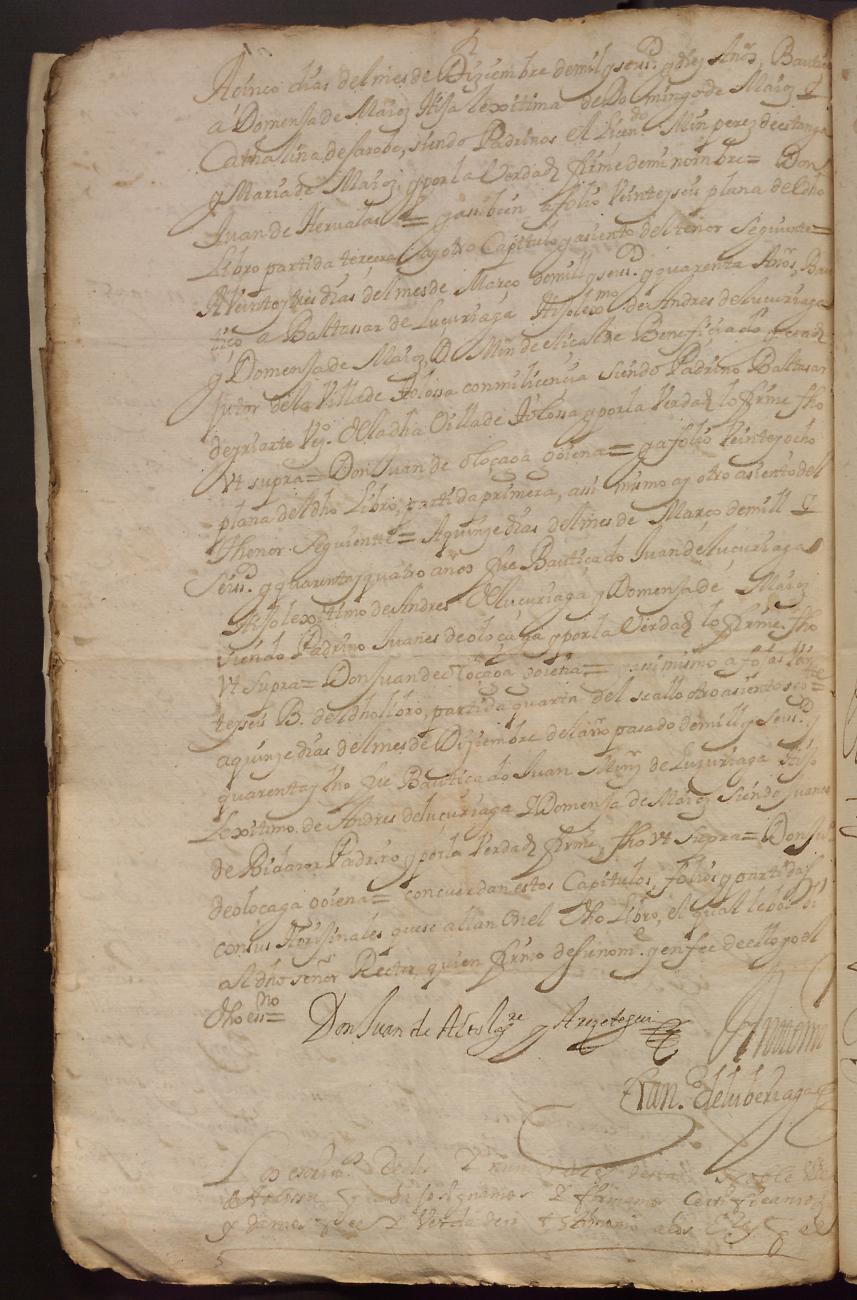 A cinco dias del mes de Diziembre de mil y seisᵒ. y diez Años, Bautice
a Domensa de Maroz Hija lexitima de Domingo de Maroz y
Cathalina de sarobe, siendo Padrinos el Licenᵈᵒ Mȓn perez de estanga
y Maria de Maroz, y por la Verdad firme de mi nombre = Don
Juan de Hervalas = y assi bien a folio Veinte y seis plana del dho
Libro partida tercera ay otro Capitulo y asiento del tenor Seguiente =
A Veinte y tres dias del mes de Março de mill y seisᵒ. y quarenta Años, Bau
tiço a Baltassar de Lucuriaga Hijo lexᵐᵒ de Andres de lucuriaga
y Domensa de Maroz, D. Mȓn de elicalde Beneficiado y coad
jutor de la Villa de tolossa con mi licencia siendo Padrino Baltasar
de yriarte Vzᵒ. de la dha Villa de tolossa y por la Verdad lo firme fho
Vt supra = Don Juan de oloçaga ooiena = y a folio Veinte y ocho
plana del dho Libro, partida primera, assi mismo ay otro asiento del
thenor Seguiente = A quinze dias del mes de Março de mill y
Seisᵒ. y quarenta y quatro años fue Bauticado Juan de lucuriaga
Hijo lexitimo de Andres de lucuriaga y Domensa de Maroz
siendo Padrino Juanes de oloçaga y por la Verdad lo firme fho
Vt Supra = Don Juan de oloçaga ooiena = y assi mismo a fojas
te y seis B. del dho libro, partida quarta del se allo otro asiento
a quinze dias del mes de Diziembre del año pasado de mill y Seisᵒ. y
quarenta y ocho fue Bauticado Juan Mȓnz de Luzuriaga Hijo
Lexitimo de Andres de lucuriaga y Domensa de Maroz siendo Juanes
de Bidaror Padrino y por la Verdad firme, fho Vt supra = Don Juº
de oloçaga ooiena = concuerdan estos Capitulos, folios y partidas
con sus Horijinales que se allan en el dho Libro, el qual le bolbi
al dho señor Rector, quien firmo de su nomᵉ. y en fee de ello yo el
dho essⁿᵒ =
Don Juan de Alcolᵍʳᵉ y Arqetegui
Antemi
Franᶜᵒ. de luberiaga
Los escriuᵒˢ
de tolossa y signamos y firmamos certificamos
y damos fee y Verdadero testimonio a los